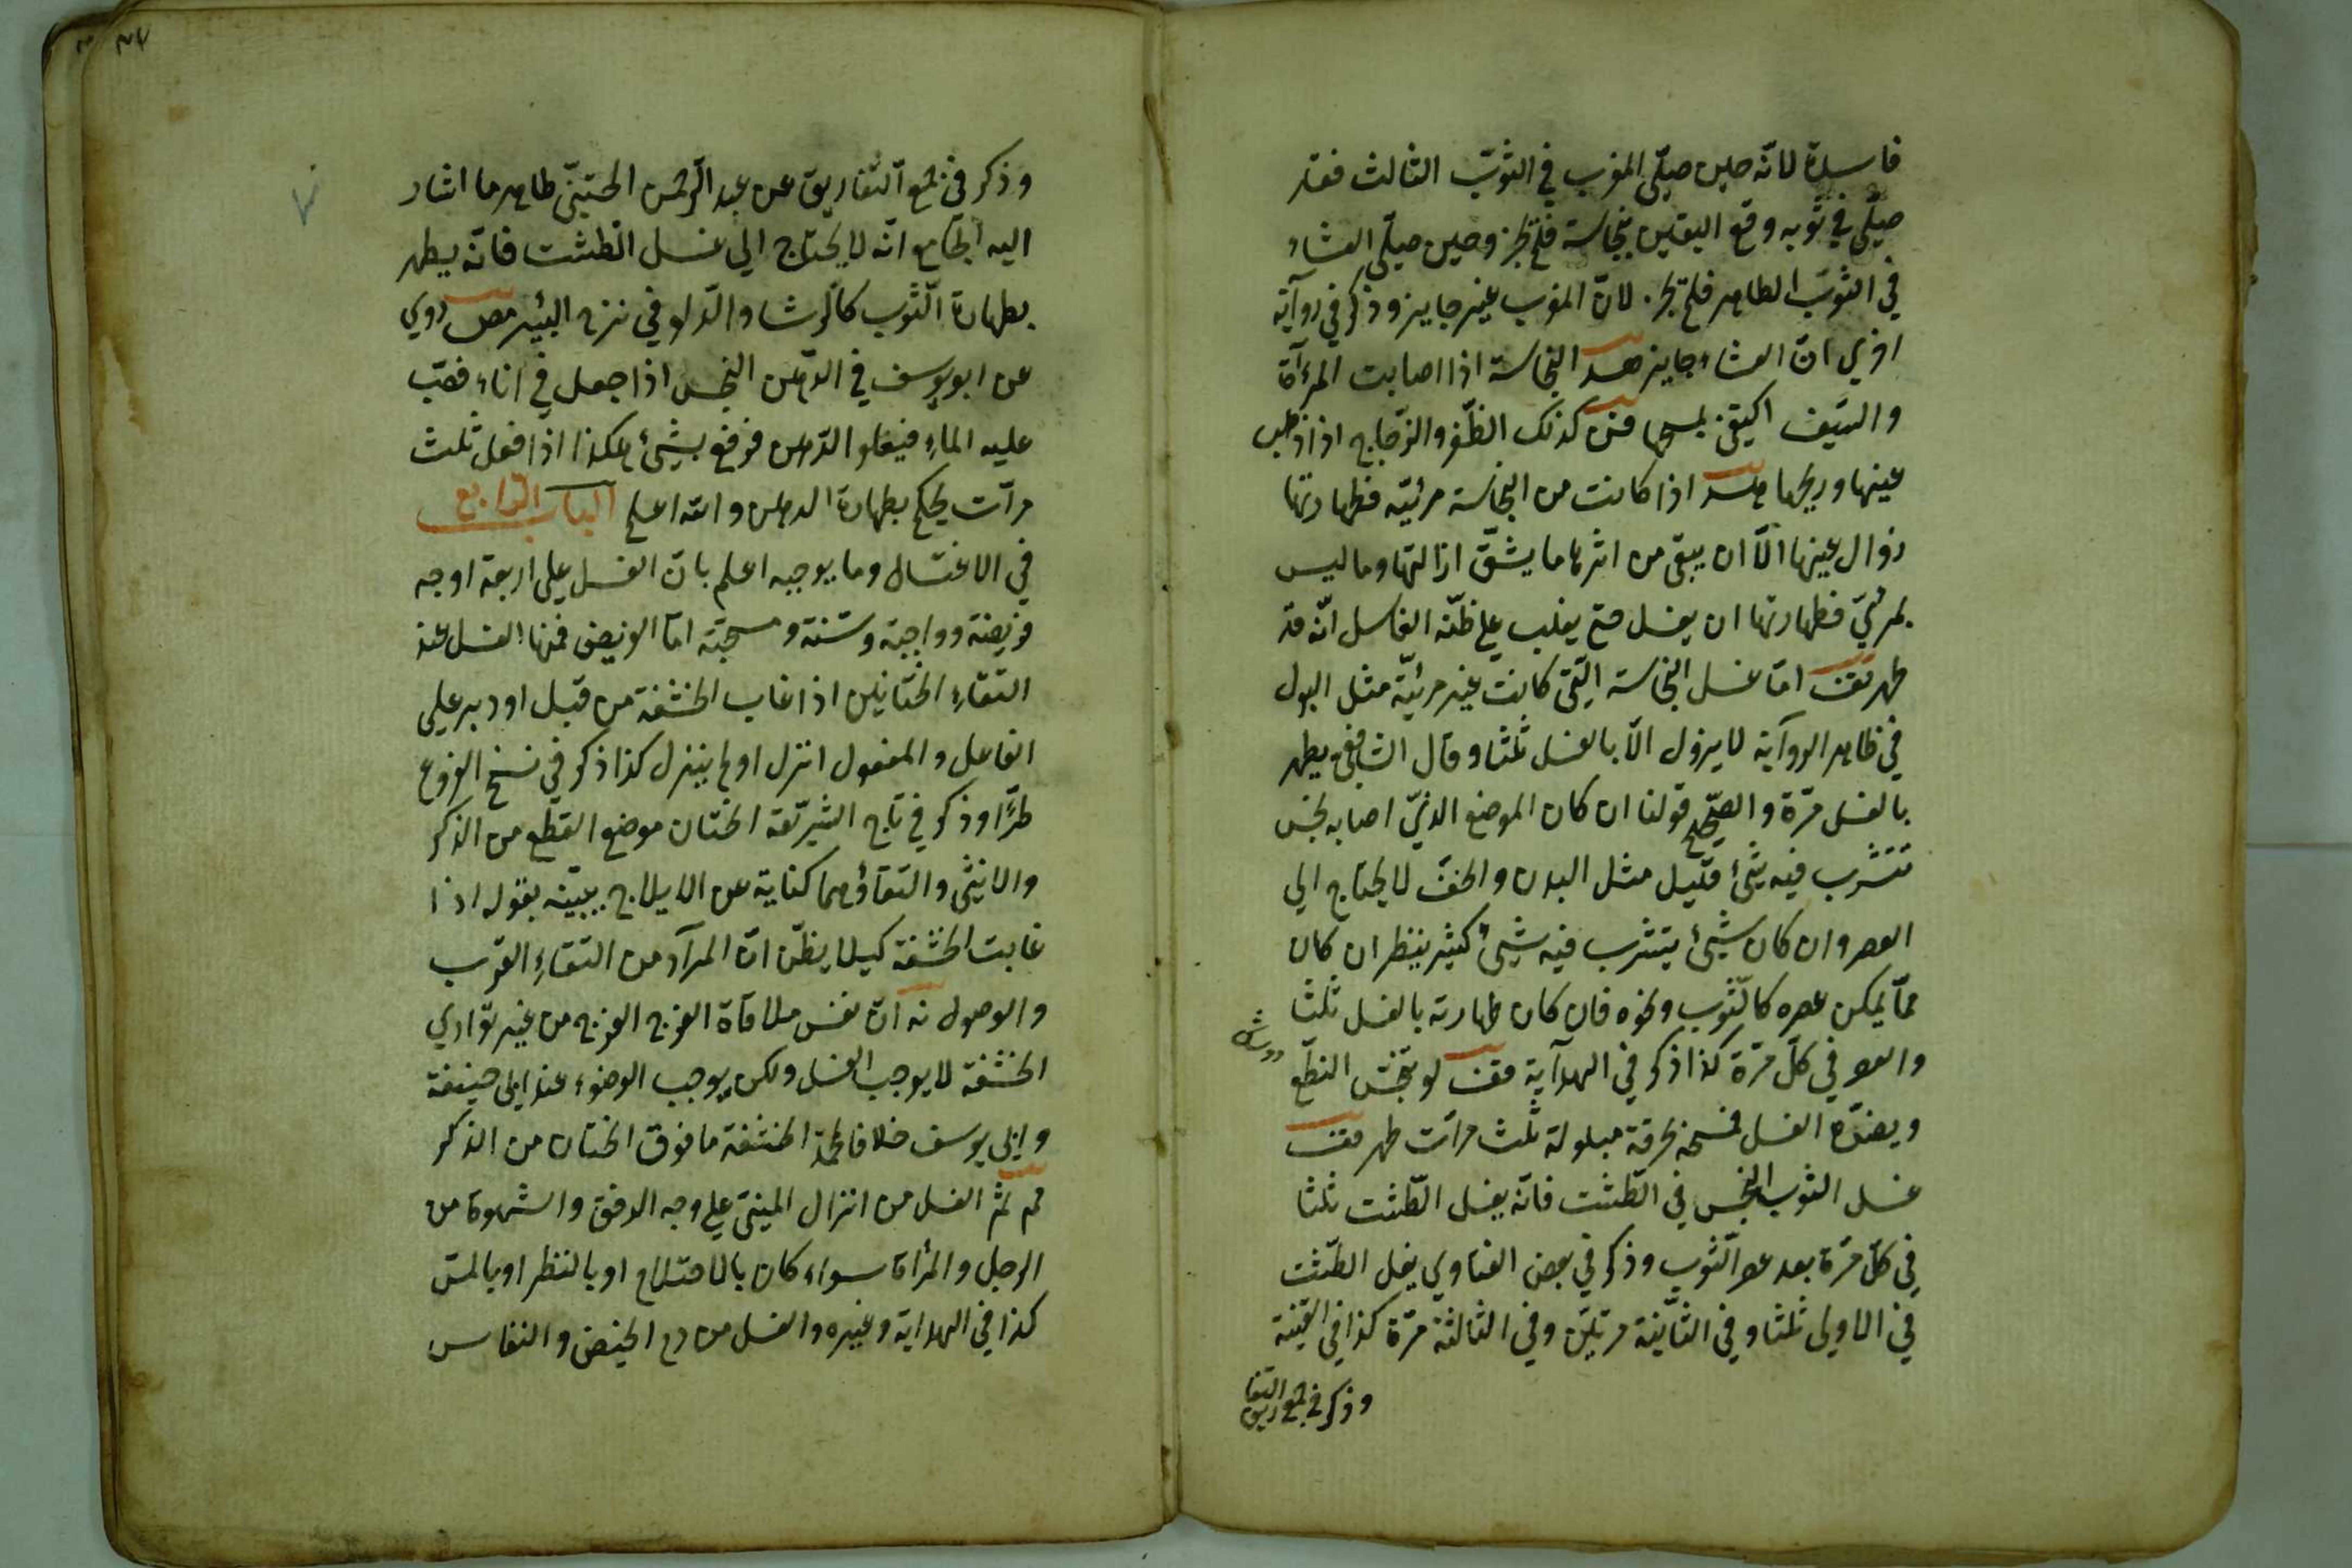 فاسدة لانّه حين صلّى المغرب في الثوب الثالث فقد
صلّى في ثوبه وقع اليقين بنجاسة فلم تجز وحين صلّى العشاء
في الثوب الطاهر فلم تجز لانّ المغرب غير جايز وذكر في روآية
اخرى انّ العشاء جايز النجاسة اذا اصابت المرءآة
والسّيف اكتفى بمسحها كذلك الظّفر والزّجاج اذا ذهب
عينها وريحها اذا كانت من النجاسة مرئيّه فطهارتها
زوال عينها الّا ان يبقى من اثرها ما يشقّ ازالتها وما ليس
بمرئيّ فطهارتها ان يغسل حتى يغلب على ظنّه الغاسل انّه قد
طهر امّا غسل النجاسة الّتى كانت غير مرئيّة مثل البول
في ظاهر الروآية لا يزول الّا بالغسل ثلثا وقال الشافعى يطهر
بالغسل مرّة والصّحيح قولنا ان كان الموضع الذيّ اصابه نجس
تتشرب فيه شئ قليل مثل البدن والخفّ لا يحتاج الى
العصر وان كان شئ يتشرب فيه شئ كثير ينظر ان كان
ممّا يمكن عصره كالثّوب ونحوه فان كان طهارته بالغسل ثلثا
والعصر في كلّ مرّة كذا ذكر في الهدآية لو تنجّس النطّع
ويضرّه الغسل فمسحه بخرقة مبلولة ثلث مرّات طهر
غسل الثوب النجس في الطّشت فانّه يغسل الطّشت ثلثا
في كلّ مرّة بعد عصر الثّوب وذكر في بعض الفتاوي يغسل الطشت
في الاولى ثلثا وفي الثّانية مرتين وفي الثالثة مرّة كذا في القنية
وذكر في جمع التفاريق
وذكر في جمع التّفاريق عن عبد الرّحمن الختنىّ ظاهر ما اشار
اليه الجامع انّه لا يحتاج الى غسل الطّشت فانّه يطهر
بطهارة الثّوب كالرشاء والدّلو في نزح البئر روي
عن ابو يوسف في الدّهن النجس اذا جعل في اناء فصبّ
عليه الماء فيعلو الدّهن فرفع بشئ هكذا اذا فعل ثلث
مرّات يحكم بطهارة الدهن والله اعلم الباب الرّابع
في الاغتسال وما يوجبه اعلم بانّ الغسل على اربعة اوجه
فريضة وواجبة وسنّة ومستحبّة امّا الفريض فمنها الغسل عند
التقاء الختانين اذا غاب الحشفة من قبل او دبر على
الفاعل والمفعول انزل او لم ينزل كذا ذكر في نسخ الفروع
طرّا وذكر في تاج الشّريعة الختان موضع القطع من الذكر
والانثى والتقاؤهما كناية عن الايلاج يبيّنه بقوله اذا
غابت الحشفة كيلا يظنّ انّ المرآد من التقاء القرب
والوصول انّ نفس ملاقاة الفرج الفرج من غير توّاري
الحشفة لا يوجب الغسل ولكن يوجب الوضوء عند ابى حنيفة
وابى يوسف خلافا لمحمّد الحشفة ما فوق الختان من الذكر
ثمّ الغسل من انزال المنىّ على وجه الدفق والشهوة من
الرجل والمرأة سواء كان بالاحتلام او بالنظر او بالمسّ
كذا في الهداية وغيره والغسل من دم الحيض والنفاس